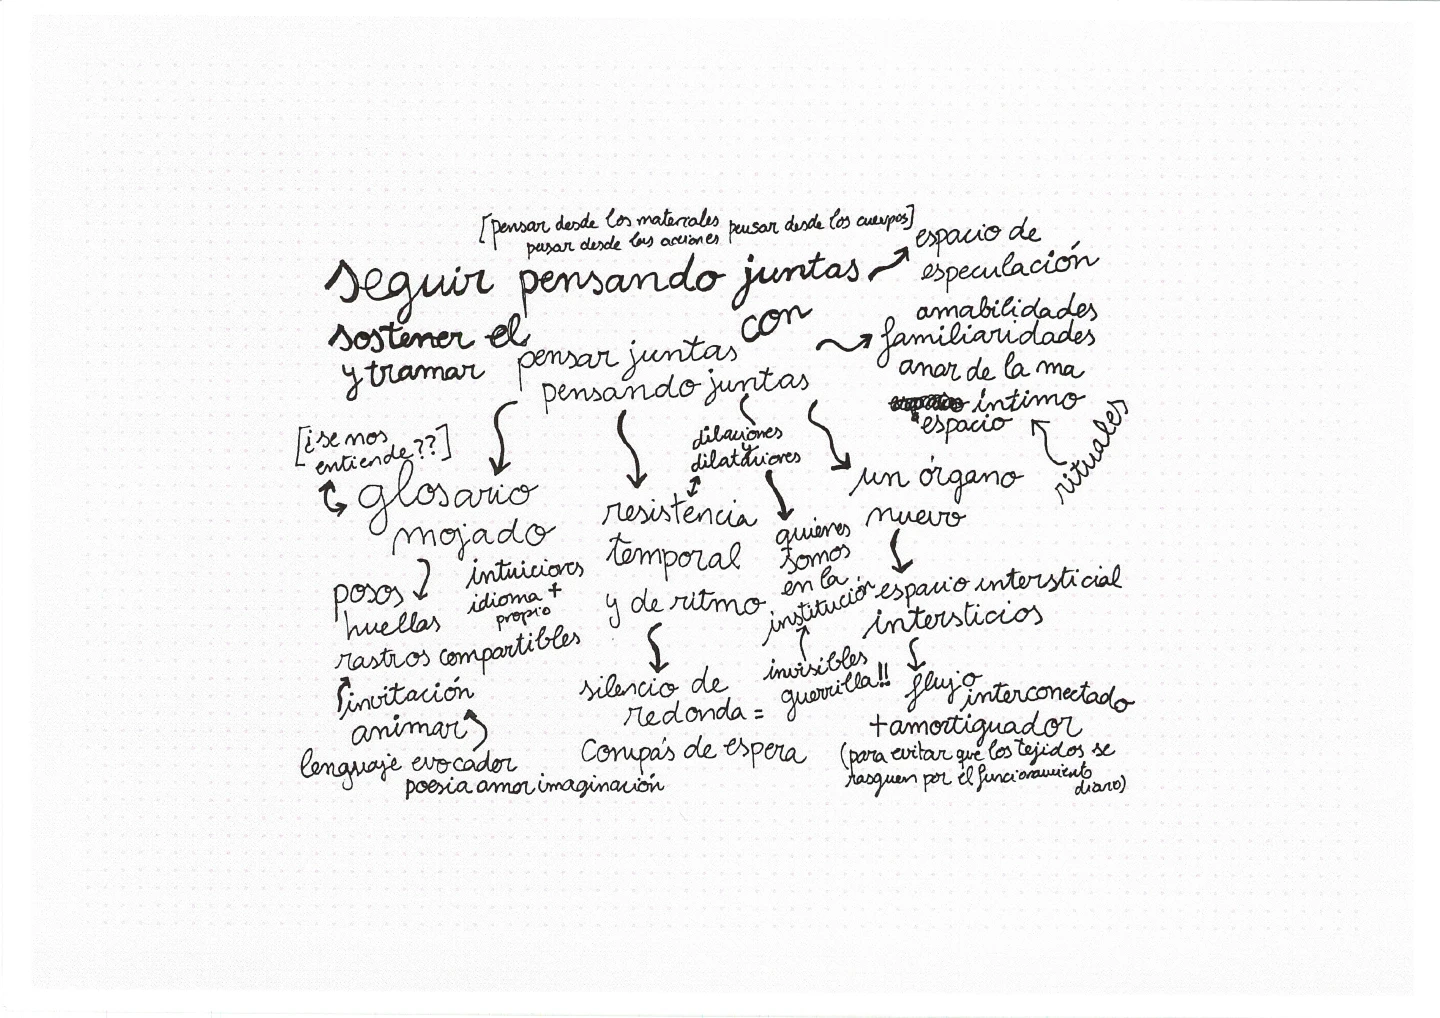 [pensar desde los materiales pensar desde los cuerpos]
pensar desde las acciones
seguir pensando juntas
con
espacio de
especulación
sostener el
y tramar
pensar juntas
pensando juntas
amabilidades
familiaridades
anar de la ma
íntimo
espacio
rituales
[¿se nos
entiende??]
glosario
mojado
posos
huellas
intuiciones
idioma +
propio
rastros compartibles
invitación
animar
lenguaje evocador
poesía amor imaginación
dilaciones
y
dilataciones
resistencia
temporal
y de ritmo
silencio de
redonda =
Compás de espera
quiénes
somos
en la
institución
invisibles
guerrilla!!
un órgano
nuevo
espacio intersticial
intersticios
flujo
interconectado
+ amortiguador
(para evitar que los tejidos se
rasguen por el funcionamiento
diario)